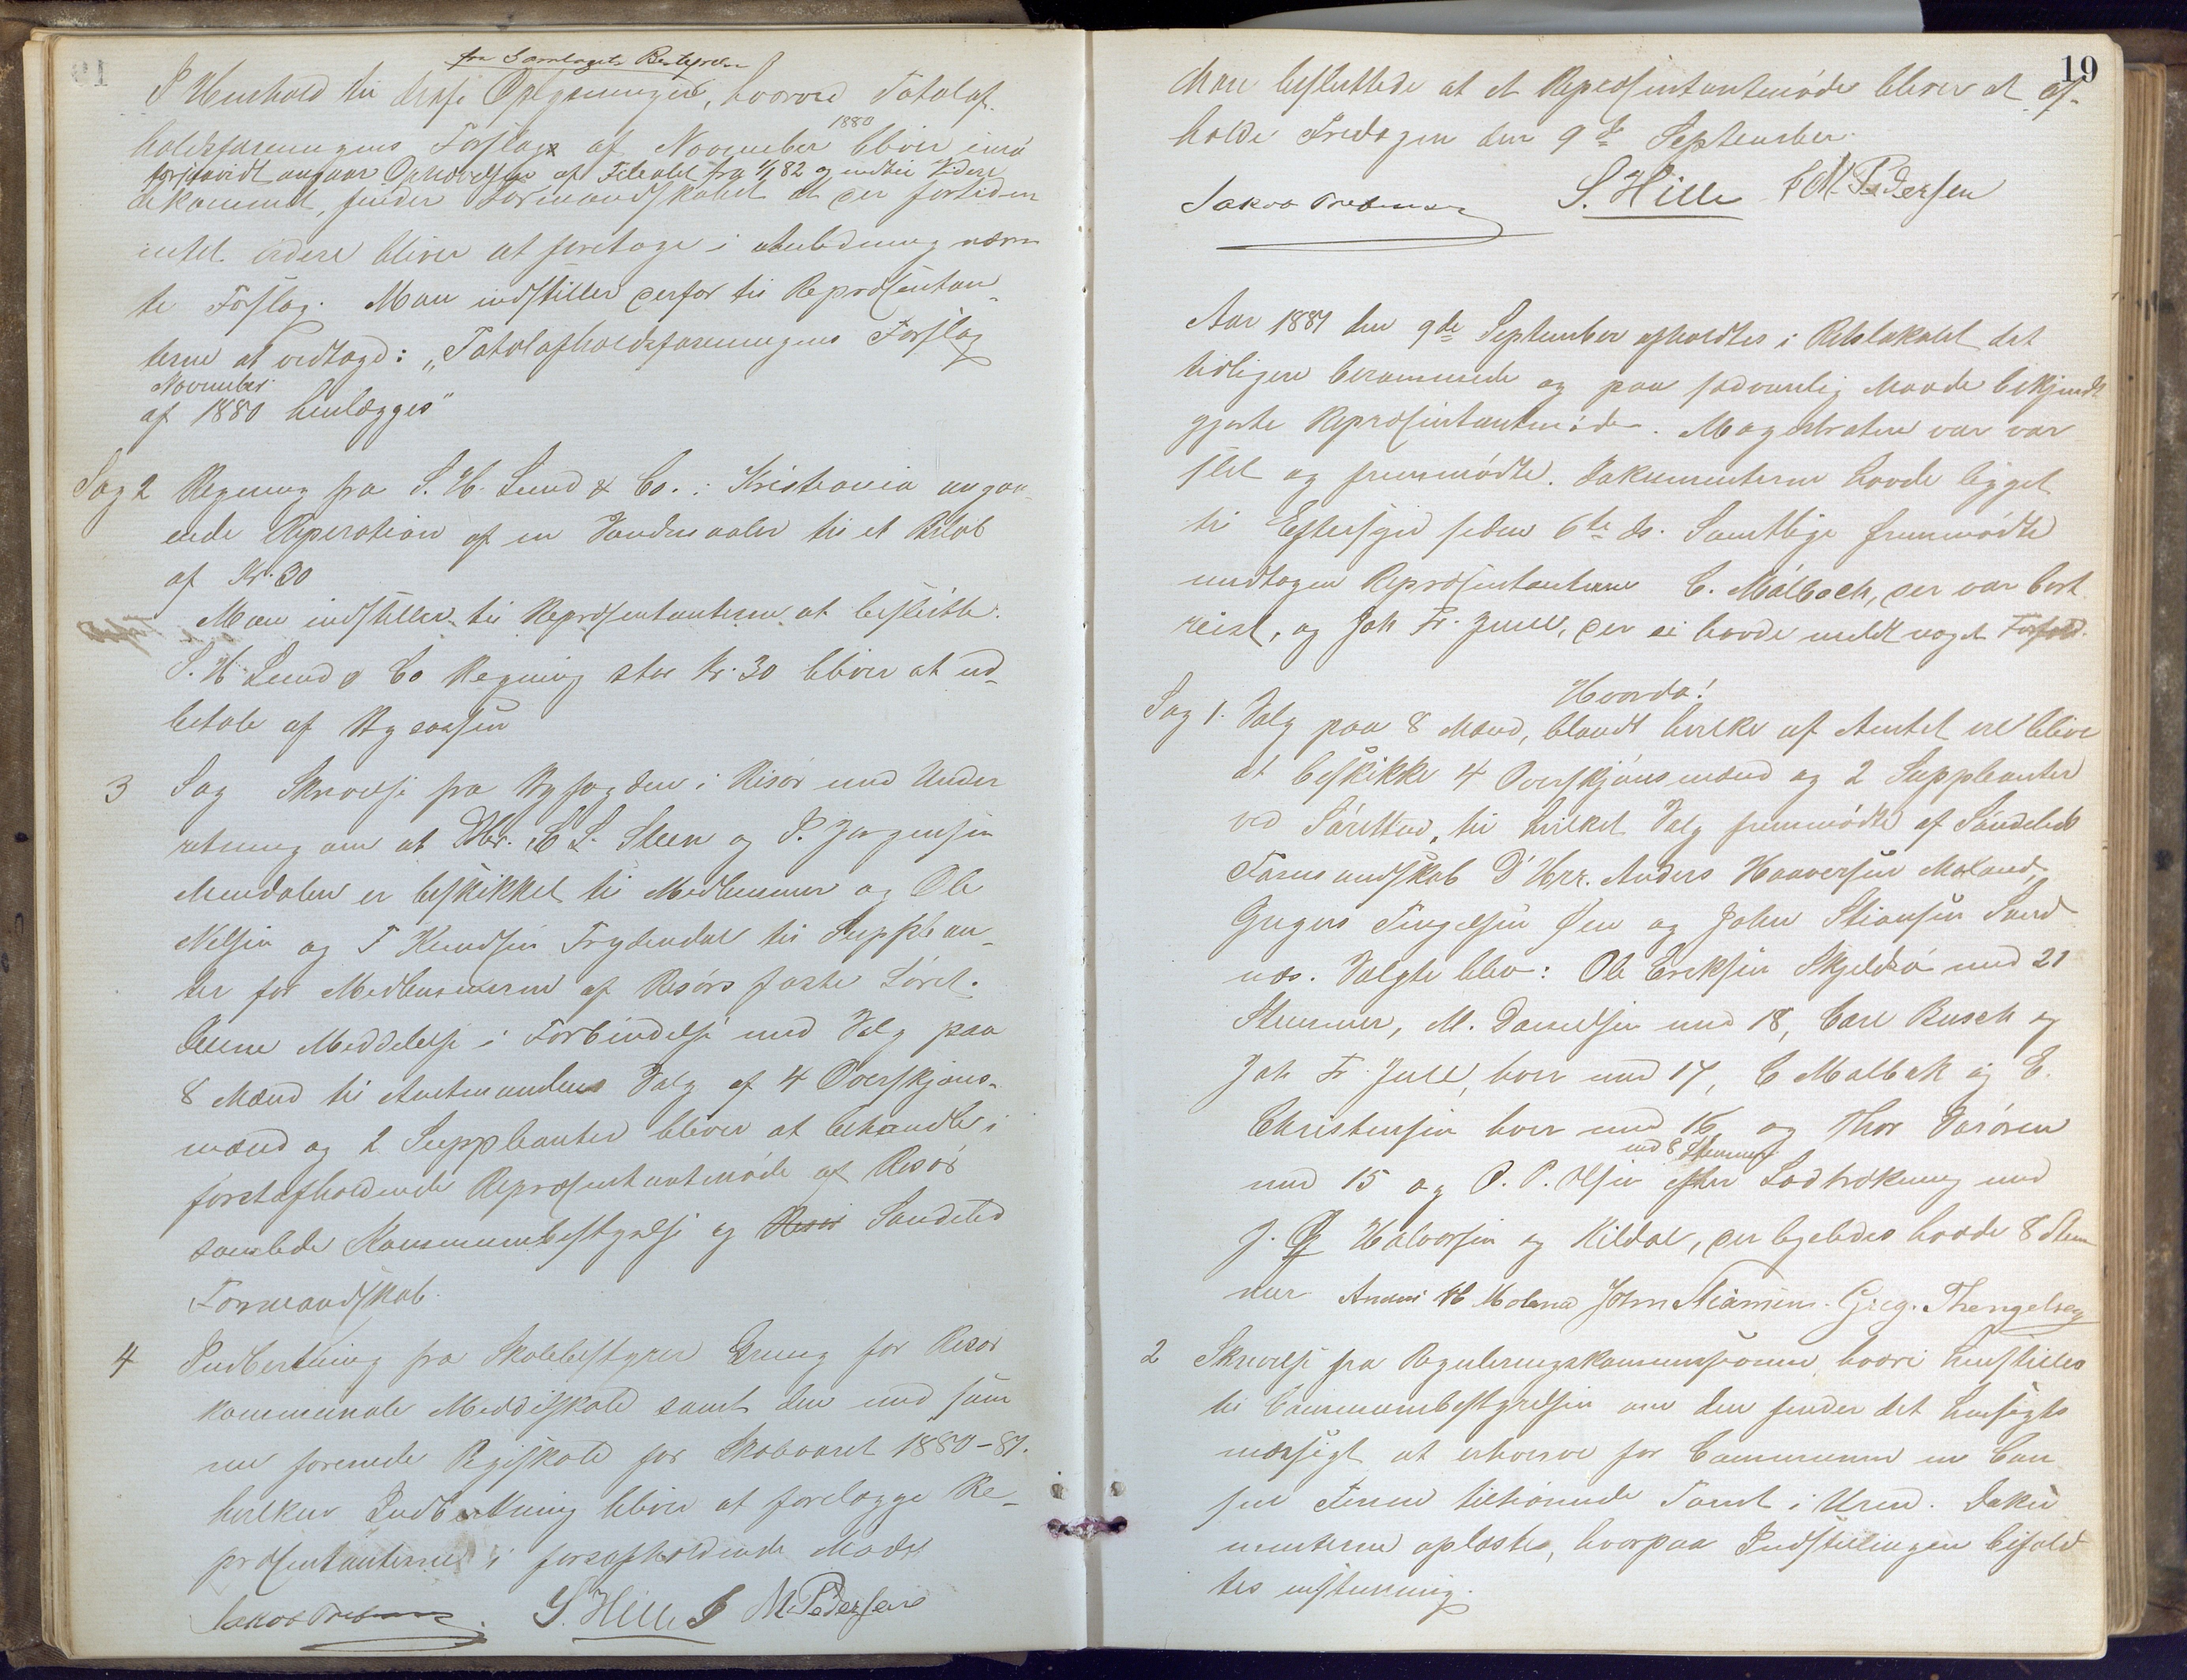 fra Samlagets Bestyrelse
I Henhold til disse Oplysninger, hvorved Totalaf-
holdsforeningens Forslag af November 1880 bliver imø
forsaavidt angaar Ophævelsen af Filialet fra 1/1 82 og indtil Videre
dekommet, finder Formandskabet at der fortiden
intet videre bliver at foretage i Anledning nævn
te Forslag. Man indstiller derfor til Repræsentan-
terne at vedtage: „Totalafholdsforeningens Forslag
November
af 1880 henlægges"
Sag 2 Regning fra S. H. Lund & Co. i Kristiania angaa-
ende Reperation af en Vandmaaler til et Beløb
af Kr. 30
Man indstiller til Repræsentanterne at beslutte:
S. H. Lund & Co Regning stor Kr. 30 bliver at ud-
betale af Bycassen
3 Sag Skrivelse fra Byfogden i Risør med Under
retning om at DHr. C L. Steen og P. Jørgensen
Mindalen er beskikket til Medlemmer og Ole
Nilsen og T Knudsen Frydendal til Supplean-
ter for Medlemmerne af Risørs faste Søret.
Denne Meddelelse i Forbindelse med Valg paa
8 Mænd til Amtmandens Valg af 4 Overskjøns-
mænd og 2 Suppleanter bliver at behandle i
førstafholdende Repræsentantmøde af Risør
samlede Kommunebestyrelse og Risør Søndeled
Formandskab.
4 Indberetning fra Skolebestyrer Grung for Risør
kommunale Middelskole samt den med sam
me forenede Pigeskole for Skoleaaret 1880-81.
hvilken Indberetning bliver at forelægge Re-
præsentanterne i førstafholdende Møde
S. Hille M. Pedersen
19
Man besluttede at et Repræsentantmøde bliver at af-
holde Fredagen den 9de September.
S. Hille M. Pedersen
Aar 1881 den 9de September afholdtes i Retslokalet det
tidligere berammede og paa sædvanlig Maade bekjendt
gjorte Repræsentantmøde. Magistraten var var
slet og fremmødte. Dokumenterne havde ligget
til Eftersyn siden 6te ds. Samtlige fremmødte
undtagen Repræsentanterne C. Malbach, der var bort
reist, og Joh Fr. Juell, der ei havde meldt noget Forfald.
Hvorda!
Sag 1. Valg paa 8 Mænd, blandt hvilke af Amtet vil blive
at beskikke 4 Overskjønsmænd og 2 Suppleanter
ved Søretten, til hvilket Valg fremmødte af Søndeleds
Formandskab D'Hrr. Anders Haaversen Moland,
Gregers Tingelsen Øen og John Stiansen Sand
næs. Valgte blev: Ole Eriksen Skjeldsø med 21
Stemmer, M. Danielsen med 18, Carl Busch og
Joh Fr. Juell, hver med 17, C Malbak og E.
Christensen hver med 16, og Thor Barøen
med 8 Stemmer
med 15 og O. P. Olsen efter Lodtrækning med
J. G Halvorsen og Kildal, der ligeledes havde 8 Stem
mer Anders H Moland John Stiansen. Greg. Thengelsen
2 Skrivelse fra Reguleringskommissionen, hvori henstilles
til Communebestyrelsen om den finder det hensigts
mæssigt at erhverve for Communen en Con
sul Finne tilhørende Tomt i Uren. Doku
menterne oplæstes, hvorpaa Indstillingen bifald
tes enstemmig.